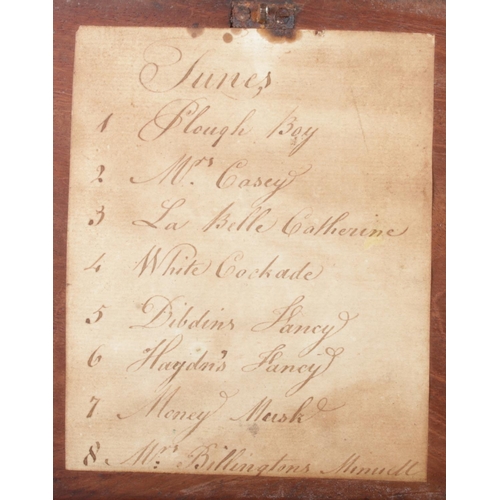 Tunes
1 Plough Boy
2 Mrs. Casey
3 La Belle Catherine
4 White Cockade
5 Dibdins Fancy
6 Haydn's Fancy
7 Money Musk
8 Mrs. Billingtons Minuell